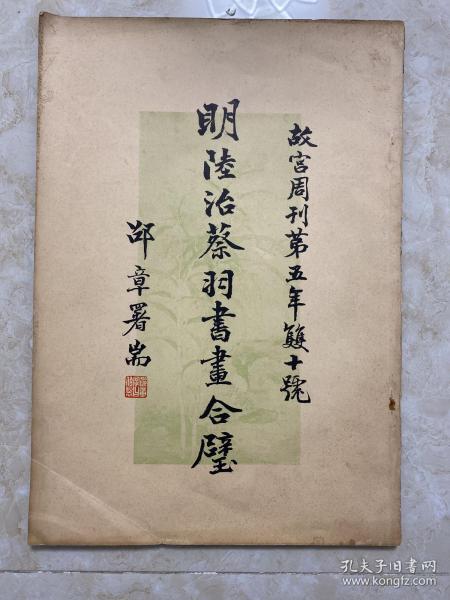 故宮周刊第五年雙十號
明陸治蔡羽書畫合璧
邵章署耑
孔夫子旧书网
www.kongfz.com